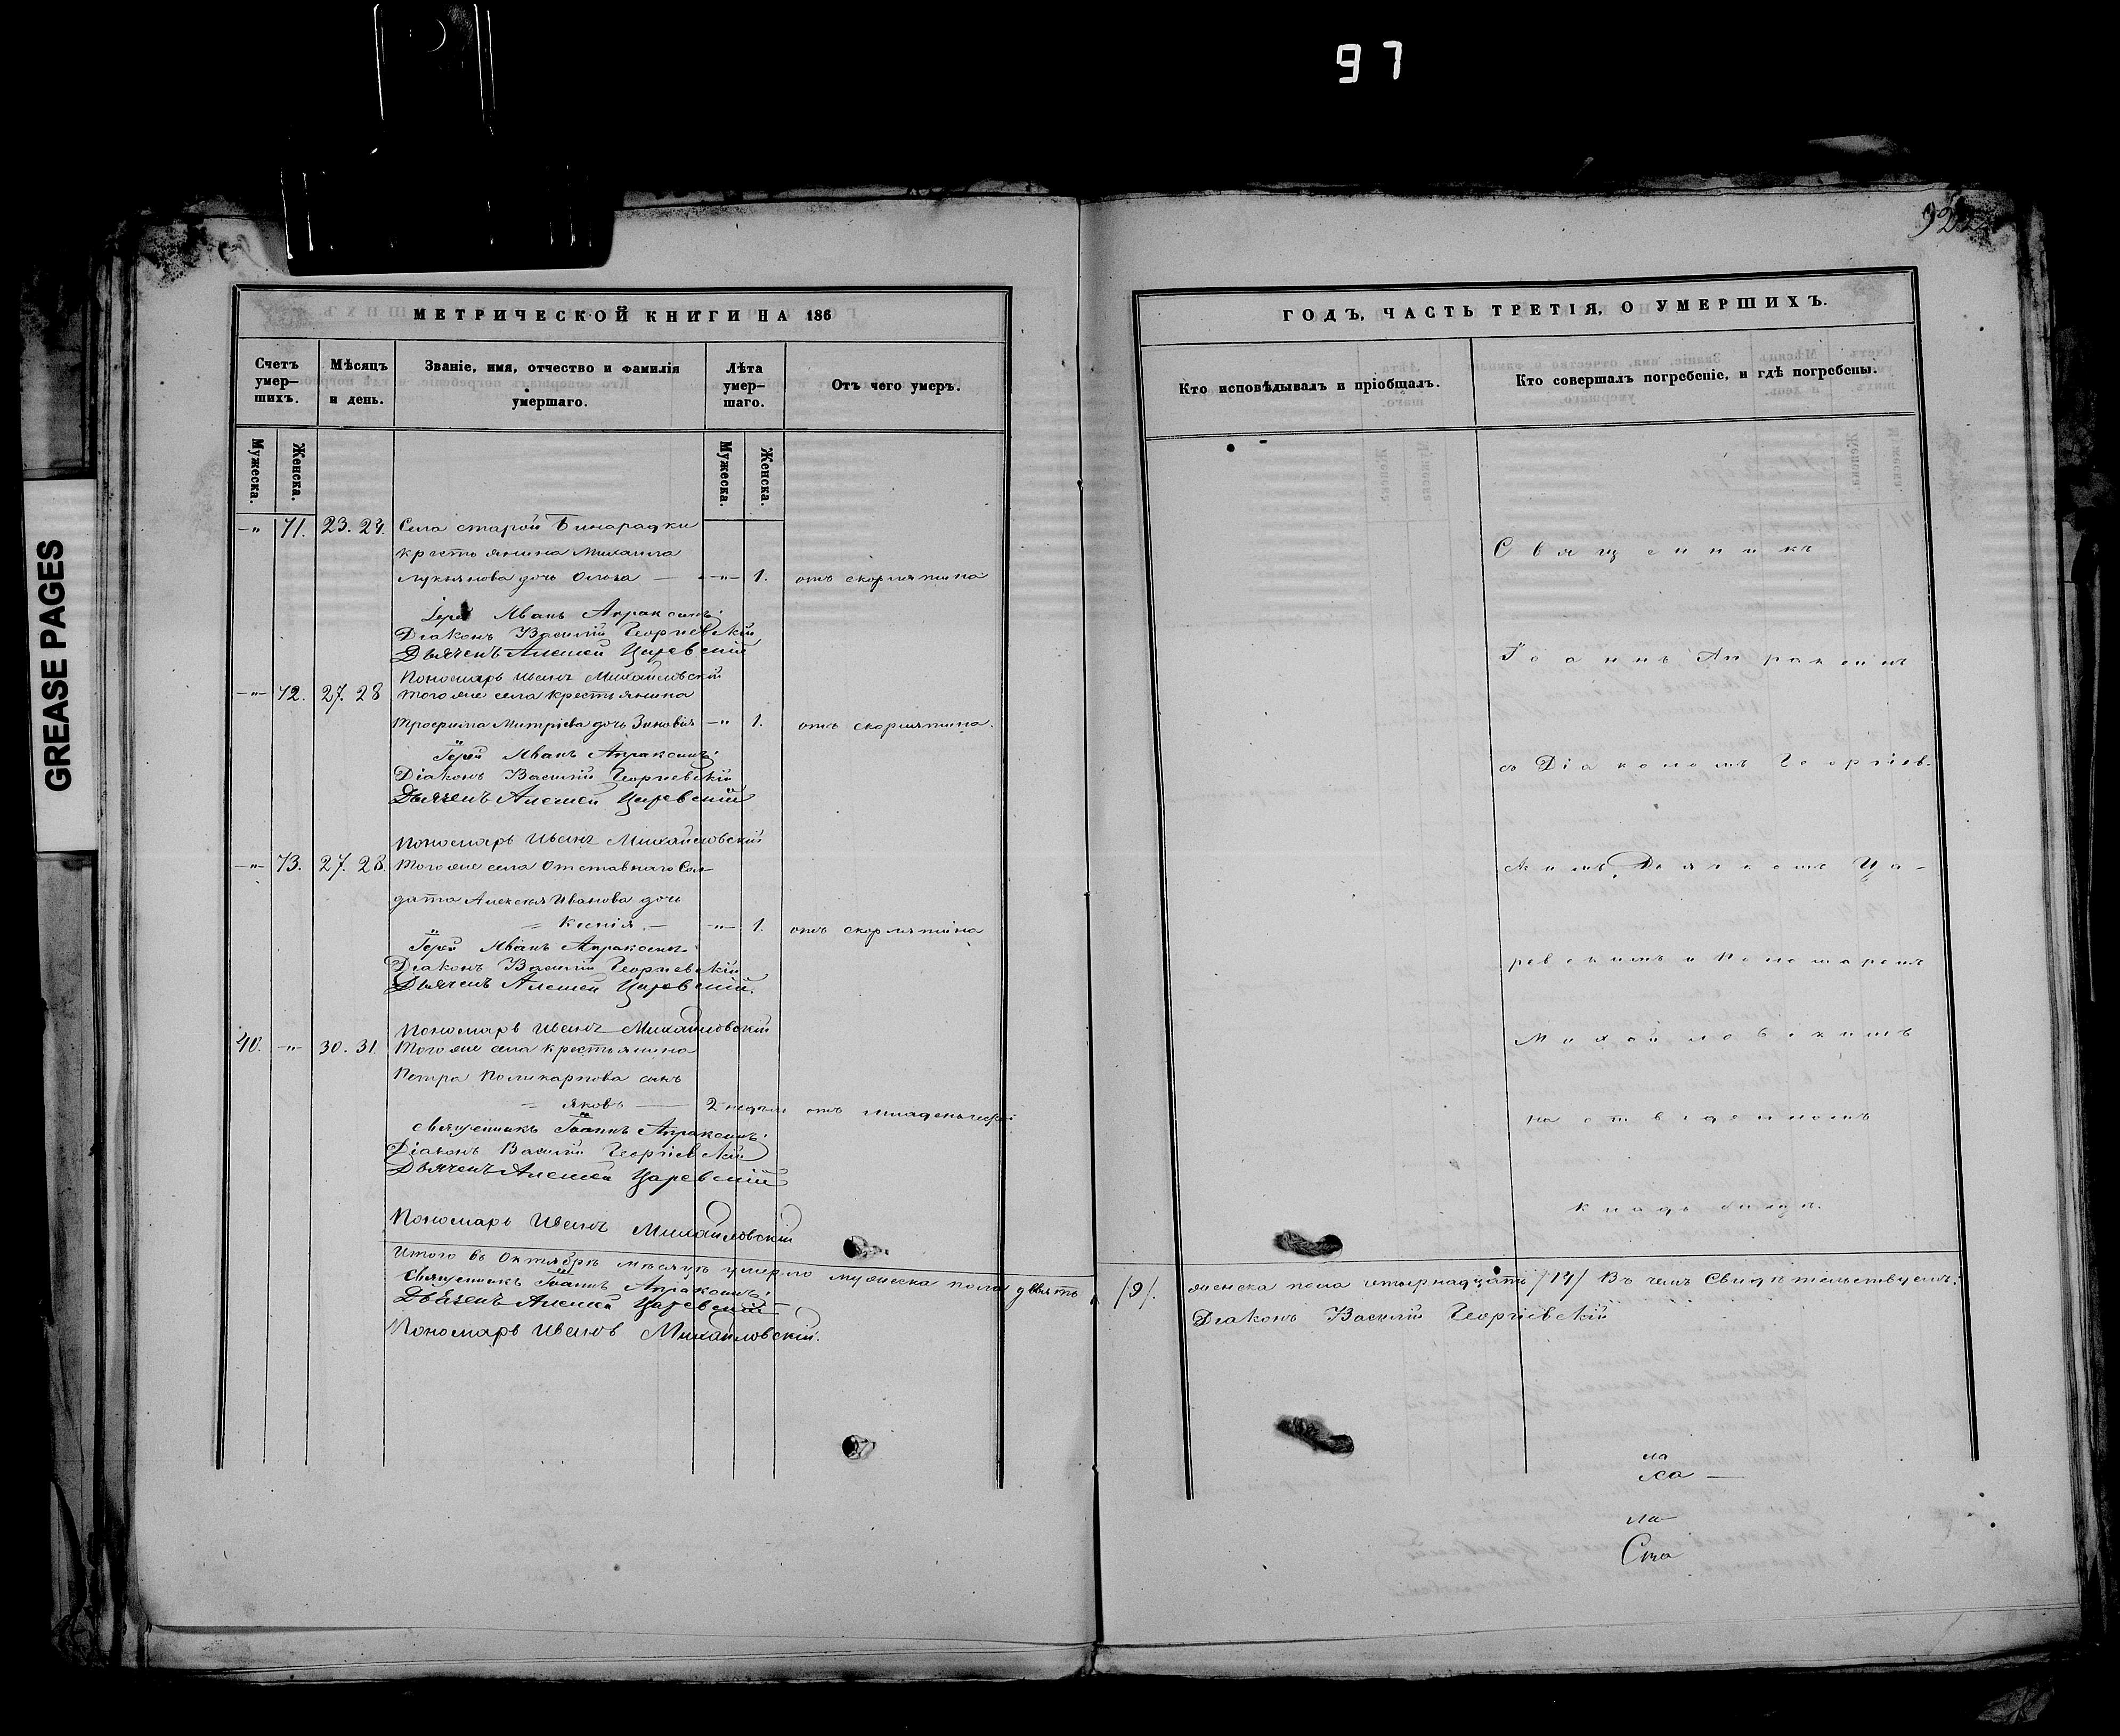 97
GREASE PAGES
922
МЕТРИЧЕСКОЙ КНИГИ НА 186
Счетъ умер-шихъ.
Мѣсяцъ и день.
Званіе, имя, отчество и фамилія умершаго.
Лѣта умер-шаго.
Отъ чего умеръ.
Мужеска.
Женска.
Мужеска.
Женска.
-"- 71. 23. 24. Села старой Бинарадки
крестьянина Михаила
Лукьянова дочь Ольга — -"- 1. отъ скорлятина
Іерей Иванъ Апраксинъ.
Діаконъ Василій Георгіевскій
Дьячекъ Алексей Царевскій
Пономарь Иванъ Михайловскій
-"- 72. 27. 28 Того же села крестьянина
Трофима Митріева дочь Зиновія -"- 1. отъ скорлятина.
Іерей Иванъ Апраксинъ.
Діаконъ Василій Георгіевскій
Дьячекъ Алексей Царевскій
Пономарь Иванъ Михайловскій
-"- 73. 27. 28. Того же села Отставнаго Сол-
дата Алексея Иванова дочь
= Ксенія. — -"- 1. отъ скорлятина
Іерей Иванъ Апраксинъ.
Діаконъ Василій Георгіевскій
Дьячекъ Алексей Царевскій.
Пономарь Иванъ Михайловскій
40. -"- 30. 31. Того же села крестьянина
Петра Поликарпова сынъ
= Яковъ — 2 недели отъ младенческой
священникъ Іоаннъ Апраксинъ.
Діаконъ Василій Георгіевскій
Дьячекъ Алексей Царевскій
Пономарь Иванъ Михайловскій
Итого въ Октябрѣ мѣсяцѣ умерло мужеска пола девять
священникъ Іоаннъ Апраксинъ.
Дьячекъ Алексей Царевскій
Пономарь Иванъ Михайловскій.
ГОДЪ, ЧАСТЬ ТРЕТІЯ, О УМЕРШИХЪ.
Кто исповѣдывалъ и пріобщалъ.
Кто совершалъ погребеніе, и гдѣ погребены.
Священникъ
Іоаннъ Апраксинъ
съ Діакономъ Георгіев-
скимъ, Дьячкомъ Ца-
ревскимъ и Пономаремъ
Михайловскимъ
на отведенномъ
кладбищѣ.
/9/. женска пола четырнадцать /14/ Въ чемъ Свидѣтельствуемъ:
Діаконъ Василій Георгіевскій
ла
ха —
ла
Ста